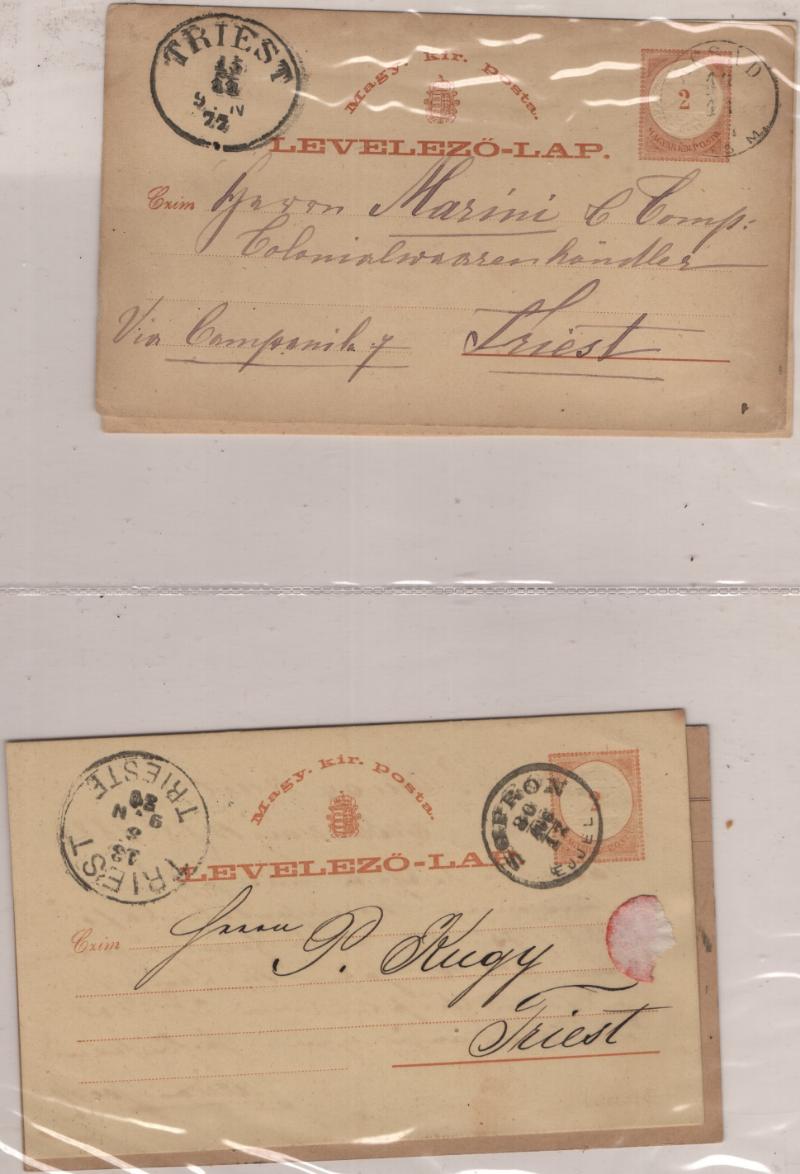 TRIEST
9 N
22
Magy. kir. Posta.
2
MAGYAR KIR. POSTA
LEVELEZŐ-LAP.
Czim Herrn Marini & Comp:
Colonialwaarenhändler
Via Campanile 7 Triest
TRIEST TRIESTE
13
6
9 N
80
Magy. kir. Posta.
SOPRON
80
ÉJJEL
LEVELEZŐ-LAP
Czim Herrn P. Kugy
Triest